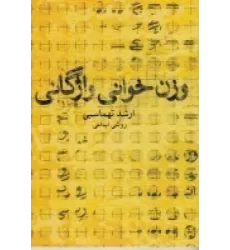 وزن‌خوانی واژگانی
ارشد تهماسبی
روشی ابداعی